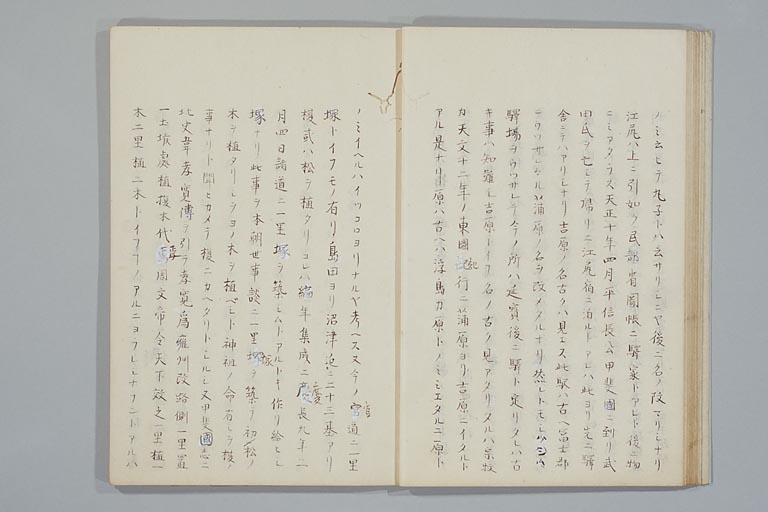 ノミ云ヒテ丸子トハ云サリシニヤ後ニ名ノ改マリシナリ
江尻ハ上ニ引如ク民部省圖帳ニ驛家トアレト後ニ物
ニミアタラス天正十年四月平信長公甲斐國ニ到リ武
田氏ヲ亡シテ帰リニ江尻宿ニ泊ルトアレハ此ヨリ先ニ驛
舎ニテハアリシナリ吉原ノ名古クハ見エス此駅ハ古ヘ冨士郡
ニウツサレタル蒲原ノ名ヲ改メタルナリ然レトモ
驛場ヲウツサレテ今ノ所ハ延寳後ニ驛ト定リタレハ古
キ事ハ知難シ吉原トイフ名ノ古ク見アタリタルハ宗牧
カ天文十二年ノ東國紀行ニ蒲原ヨリ吉原ニイタルト
アル是ナリ原ハ古ヘハ浮島カ原トノミミエタルニ原ト
ノミイヘルハイツコロヨリナルヤ考ヘス又今ノ官道ニ一里
塚トイフモノ有リ島田ヨリ沼津迠ニ二十三基アリ
榎或ハ松ヲ植タリコレハ編年集成ニ慶長九年二
月四日諸道ニ一里塚ヲ築シムトアルトキ作リ給ヒシ
塚ナリ此事ヲ本朝世事談ニ一里塚ヲ築テ初松ノ
木ヲ植タリシヲヨノ木ヲ植ベシト神祖ノ命有シヲ榎ノ
事ナリト聞ヒカメテ榎ニカヘタリトシルシ又甲斐國志ニ
北史韋孝寛傳ヲ引テ孝寛為雍州改路側一里置
一土堠處植槐木代之周文帝令天下效之一里植一
木二里植二木トイフフノアルニヨクレシナランドアルハ